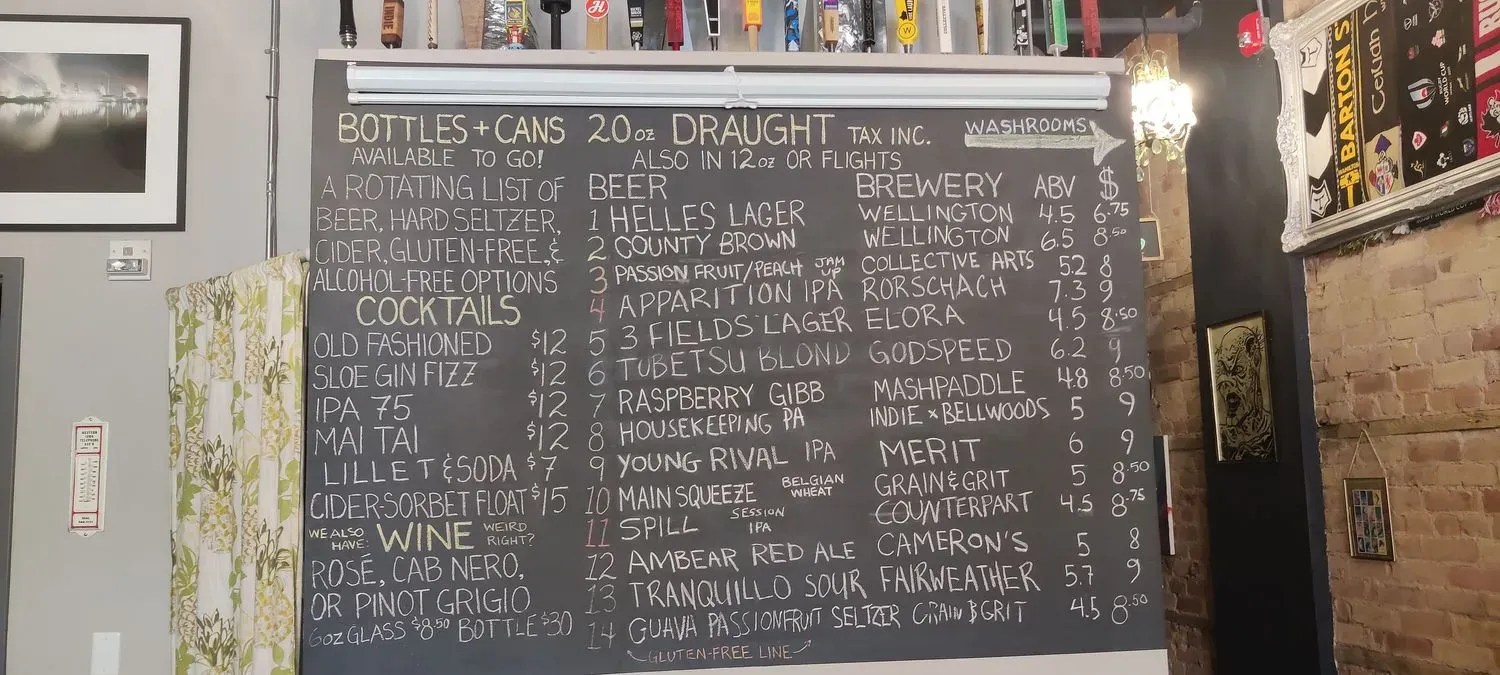 BOTTLES + CANS
AVAILABLE TO GO!
A ROTATING LIST OF
BEER, HARD SELTZER,
CIDER, GLUTEN-FREE, &
ALCOHOL-FREE OPTIONS
COCKTAILS
OLD FASHIONED $12
SLOE GIN FIZZ $12
IPA 75 $12
MAI TAI $12
LILLET & SODA $7
CIDER-SORBET FLOAT $15
WE ALSO HAVE: WINE WEIRD, RIGHT?
ROSÉ, CAB NERO,
OR PINOT GRIGIO
6oz GLASS $8.50 BOTTLE $30
20oz DRAUGHT TAX INC.
ALSO IN 12oz OR FLIGHTS
WASHROOMS
BEER BREWERY ABV $
1 HELLES LAGER WELLINGTON 4.5 6.75
2 COUNTY BROWN WELLINGTON 6.5 8.50
3 PASSION FRUIT/PEACH JAM UP COLLECTIVE ARTS 5.2 8
4 APPARITION IPA RORSCHACH 7.3 9
5 3 FIELDS LAGER ELORA 4.5 8.50
6 TUBETSU BLOND GODSPEED 6.2 9
7 RASPBERRY GIBB MASHPADDLE 4.8 8.50
8 HOUSEKEEPING PA INDIE x BELLWOODS 5 9
9 YOUNG RIVAL IPA MERIT 6 9
10 MAIN SQUEEZE BELGIAN WHEAT GRAIN & GRIT 5 8.50
11 SPILL SESSION IPA COUNTERPART 4.5 8.75
12 AMBEAR RED ALE CAMERON'S 5 8
13 TRANQUILLO SOUR FAIRWEATHER 5.7 9
14 GUAVA PASSIONFRUIT SELTZER GRAIN & GRIT 4.5 8.50
GLUTEN-FREE LINE
INDIE
BARTON S
Ceilidh h
RUGBY WORLD CUP